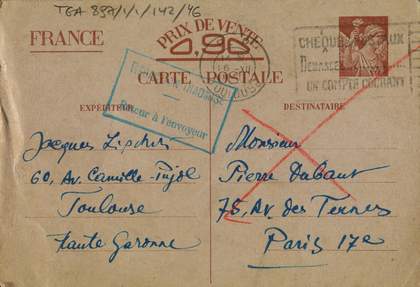 TGA 897/1/1/142/46
FRANCE
PRIX DE VENTE
0,90
CARTE POSTALE
CHÈQUES POSTAUX
DEMANDEZ
UN COMPTE COURANT
TOULOUSE
Retour à l'envoyeur
EXPÉDITEUR
DESTINATAIRE
Jacques Lipchitz
60, Av. Camille-Pujol
Toulouse
Haute Garonne
Monsieur
Pierre Dubaut
75, Av. des Ternes
Paris 17e